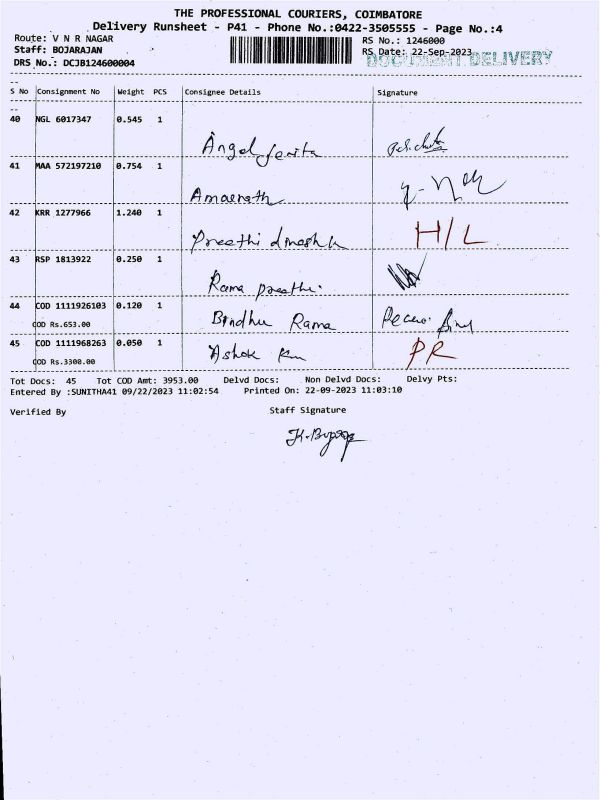 THE PROFESSIONAL COURIERS, COIMBATORE
Delivery Runsheet - P41 - Phone No.:0422-3505555 - Page No.:4
Route: V N R NAGAR
RS No.: 1246000
Staff: BOJARAJAN
RS Date: 22-Sep-2023
DOCUMENT DELIVERY
DRS No.: DCJB124600004
S No Consignment No Weight PCS Consignee Details Signature
40 NGL 6017347 0.545 1
Angel Jenita
41 MAA 572197210 0.754 1
Amarnath
42 KRR 1277966 1.240 1
Preethi dinesh H/L
43 RSP 1813922 0.250 1
Rama preethi.
44 COD 1111926103 0.120 1 Bindhu Rama
COD Rs.653.00
45 COD 1111968263 0.050 1 Ashok Km PR
COD Rs.3300.00
Tot Docs: 45 Tot COD Amt: 3953.00 Delvd Docs: Non Delvd Docs: Delvy Pts:
Entered By :SUNITHA41 09/22/2023 11:02:54 Printed On: 22-09-2023 11:03:10
Verified By Staff Signature